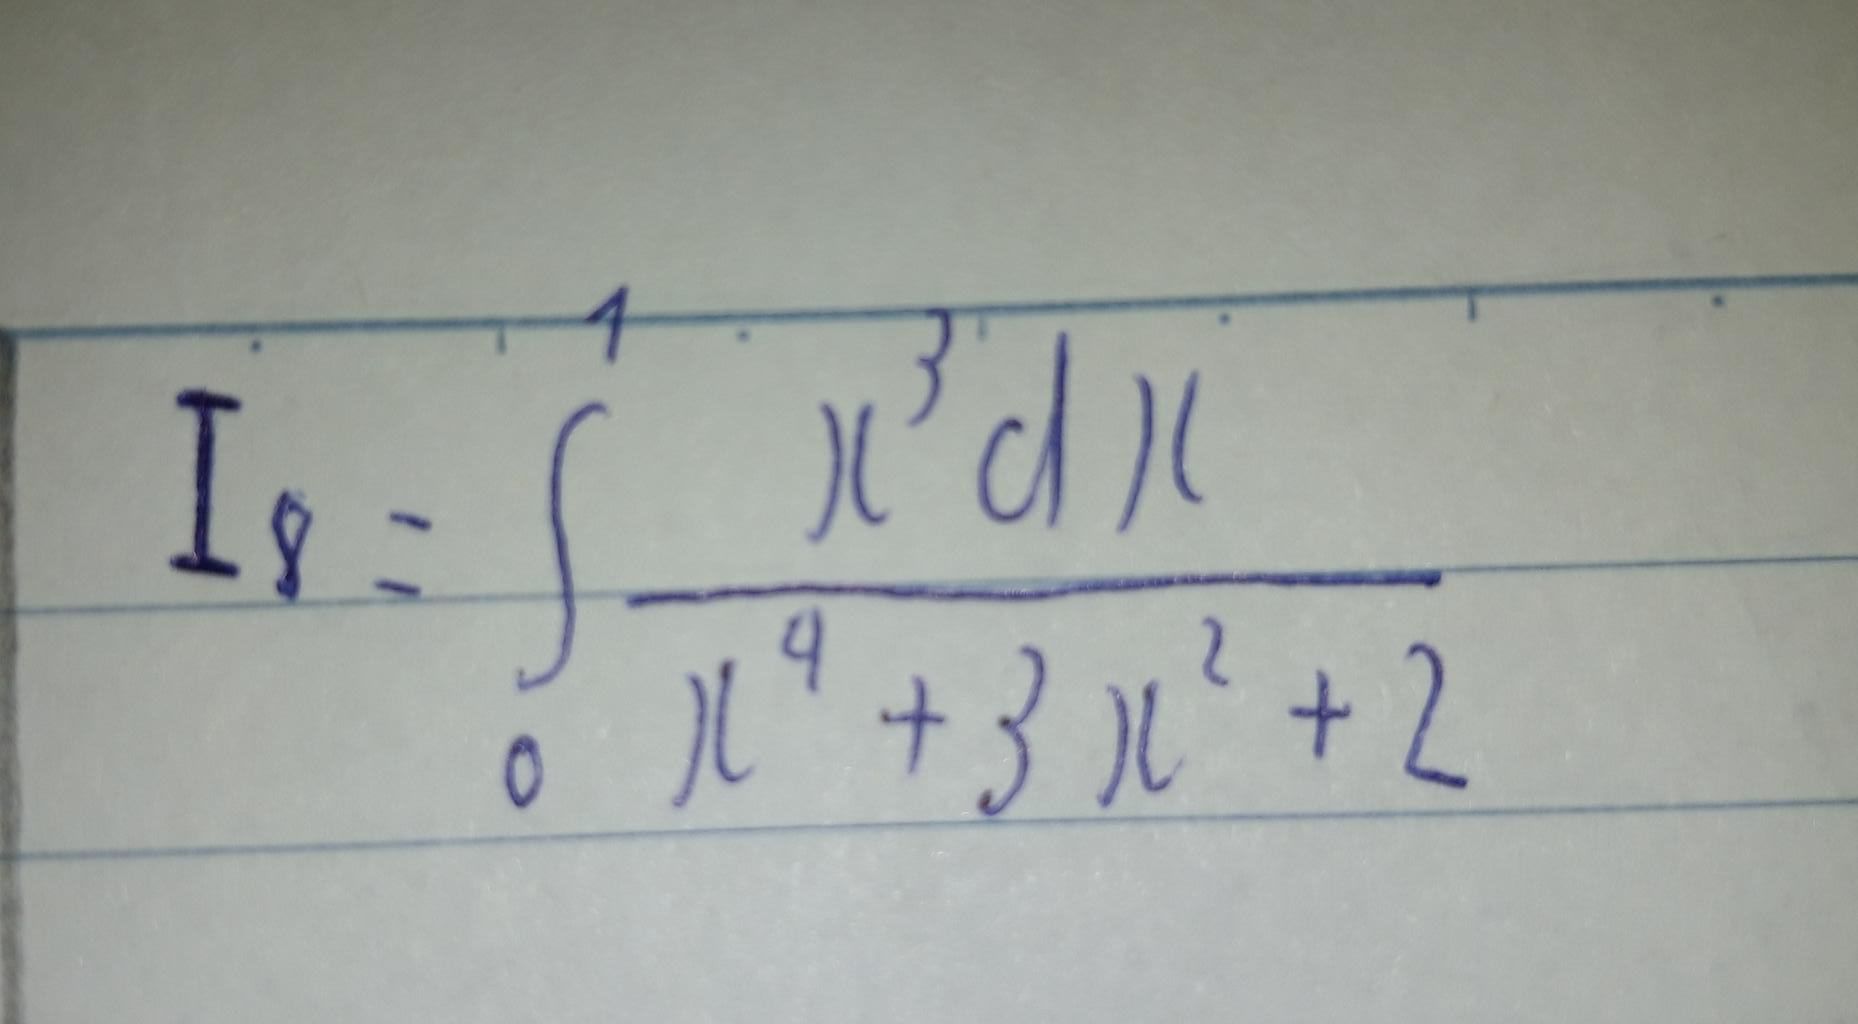 I₈ = ∫₀¹ x³dx / x⁴ + 3x² + 2